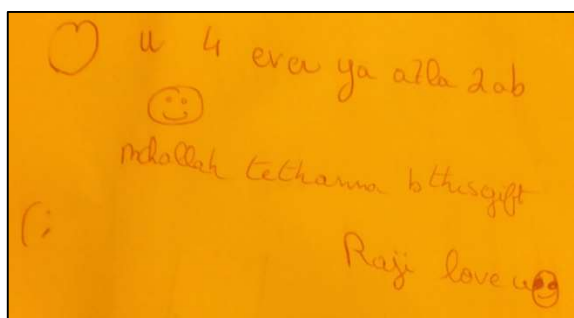 u 4 ever ya a7la 2ab
nchallah tethanna b thisgift
(;
Raji love u